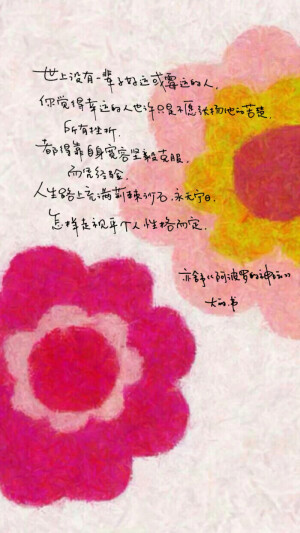 世上没有一辈子好运或霉运的人.
你觉得幸运的人也许只是不愿张扬他的苦楚.
所有挫折.
都得靠自身宽容坚毅克服.
而凭经验.
人生路上充满荆棘沙石.永无宁日.
怎样走视乎个人性格而定.
亦舒《阿波罗的神谕》